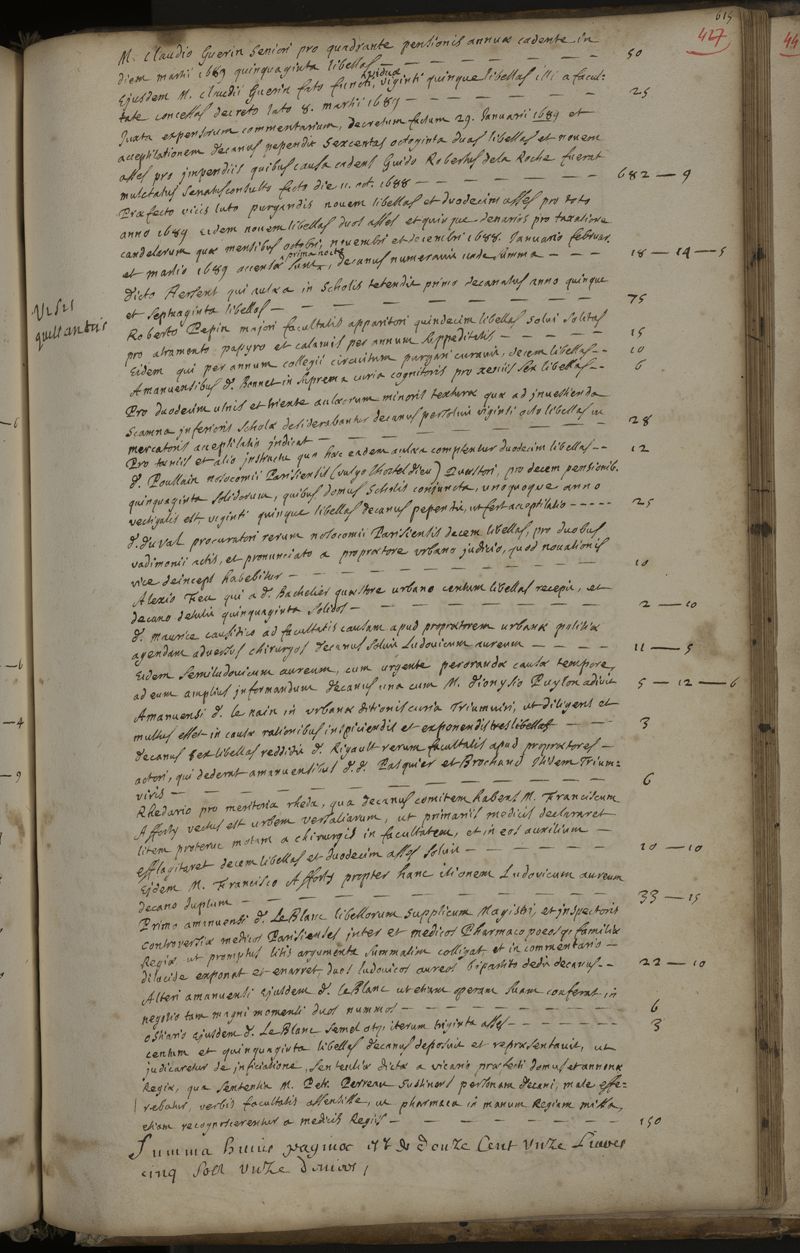 615
427
M. Claudio Guerin Seniori pro quadrante pensionis annuæ cadente in
diem martii 1689 quinquaginta libellas — 50
Ejusdem M. Claudii Guerin fato functi, viduæ viginti quinque libellas illi a facul-
tate concessas decreto lato 8. martii 1689 — 25
Juxta expensorum commentarium, decretum factum 29. Januarii 1689 et
acceptilationem decanus pependit sexcentas octoginta duas libellas et novem
asses pro impendiis quibus causa cadens Guido Robertus de la Roche fuerat
mulctatus Senatusconsulto facto die 11. oct. 1688 — 682 — 9
Præfecto vicis luto purgandis novem libellas et duodecim asses pro toto
anno 1689 Eidem novem libellas duos asses et quinque denarios pro taxatione
candelarum quæ mensibus octobri, novembri et decembri 1688. Januario februar.
et martio 1689 accensæ sunt prima nocte, decanus numeravit unde summa — 18 — 14 — 5
Dicto Hersent qui aulæa in Scholis tetendit primo decanatus anno quinque
et septuaginta libellas — 75
Visis
quittantiis
Roberto Pepin majori facultatis apparitori quindecim libellas solvi solitas
pro atramento papyro et calamis per annum suppeditatis — 15
Eidem qui per annum collegii circuitum purgari curavit, decem libellas — 10
Amanuensibus d. Bonnet in suprema curia cognitoris pro xeniis sex libellas — 6
Pro duodecim ulnis et triente aulæorum minoris texturæ quæ ad investienda
scamna inferioris Scholæ desiderabantur decanus persolvit viginti octo libellas ut
mercatoris acceptilatio indicat — 28
Pro tæniis et alio instructu quo hæc eadem aulæa comptentur duodecim libellas — 12
d. Poullain nosocomii Parisiensis (vulgo l'hostel dieu) Quæstori, pro decem pensionib.
quinquaginta solidorum, quibus domus Scholis conjuncta, unoquoque anno
vectigalis est, viginti quinque libellas decanus pependit, ut fert acceptilatio — 25
d. du Val procuratori rerum nosocomii Parisiensis decem libellas, pro duobus
vadimonii actis, et pronunciato a proprætore urbano judicio, quod novationis
vice deinceps habebitur — 10
Alexio Feu qui a d. Bachelier quæstore urbano centum libellas recepit, et
decano detulit quinquaginta solidos — 2 — 10
d. Maurice causidico ad facultatis causam apud proprætorem urbanæ politiæ
agendam adversus chirurgos decanus solvit Ludovicum aureum — 11 — 5
Eidem semiludovicum aureum, cum urgente perorandæ causæ tempore,
ad eum amplius informandum decanus una cum M. Dionysio Puylon adivit — 5 — 12 — 6
Amanuensi d. le nain in urbanæ ditionis curia Triumviri, ut diligens et
multus esset in causæ rationibus inspiciendis et exponendis tres libellas — 3
decanus sex libellas reddidit d. Rigault rerum facultatis apud proprætores
actori, qui dederat amanuensibus d.d. Pasquier et Brochand ibidem Trium-
viris — 6
Rhedario pro meritoria rheda, qua decanus comitem habens M. Franciscum
Afforty vectus est urbem versaliarum, ut primariis medicis declararet
litem proterve motam a chirurgis in facultatem, et in eos auxilium
efflagitaret decem libellas et duodecim asses solvit — 10 — 10
Ejdem M. Francisco Afforty propter hanc itionem Ludovicum aureum
decano duplum — 33 — 15
Primo amanuensi d. Le Blanc libellorum supplicum Magistri, et inspectoris
controversiæ medicos Parisienses inter et medicos Pharmacopoeosq; familiæ
Regiæ ut promptus litis argumenta summatim colligat, et in commentario
dilucide exponat et enarret, duos ludovicos aureos bipartito dedit decanus — 22 — 10
Alteri amanuensi ejusdem d. le Blanc ut etiam operam suam conferat in
negotio tam magni momenti duos nummos — 6
ostiario ejusdem d. Le Blanc semel atq; iterum triginta asses — 3
centum et quinquaginta libellas decanus deposuit et repræsentavit, ut
judicaretur de inficiatione, sententiæ dictæ a vicario præfecti domus et annonæ
Regiæ, qua sententia M. Petr. Perreau sustinens personam decani, male effe-
rebatur, verbis facultatis assensisse, ut pharmaca in manum Regiam missa,
etiam recognoscerentur a medicis Regiis — 150
Summa huius paginæ est de douze Cent unze Livres
cinq Solz unze deniers